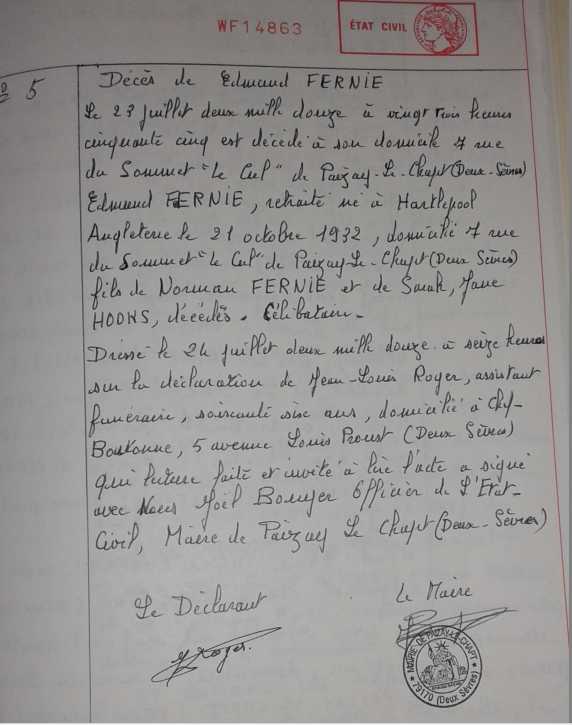 WF14863
ÉTAT CIVIL
5
Décès de Edmund FERNIE
Le 23 juillet deux mille douze à vingt trois heures
cinquante cinq est décédé à son domicile 7 rue
du Sommet "le Cul" de Paizay-Le-Chapt (Deux-Sèvres)
Edmund FERNIE, retraité né à Hartlepool
Angleterre le 21 octobre 1932, domicilié 7 rue
du Sommet "le Cul" de Paizay-Le-Chapt (Deux Sèvres)
fils de Norman FERNIE et de Sarah, Jane
HOOKS, décédés. Célibataire-
Dressé le 24 juillet deux mille douze à seize heures
sur la déclaration de Jean-Louis Roger, assistant
funéraire, soixante six ans, domicilié à Chef-
Boutonne, 5 avenue Louis Proust (Deux Sèvres)
qui lecture faite et invité à lire l'acte a signé
avec Nous Joël Officier de L'Etat-
Civil, Maire de Paizay Le Chapt (Deux-Sèvres)
Le Déclarant
Le Maire
Roger.
MAIRIE DE PAIZAY-LE-CHAPT
79170 (Deux Sèvres)